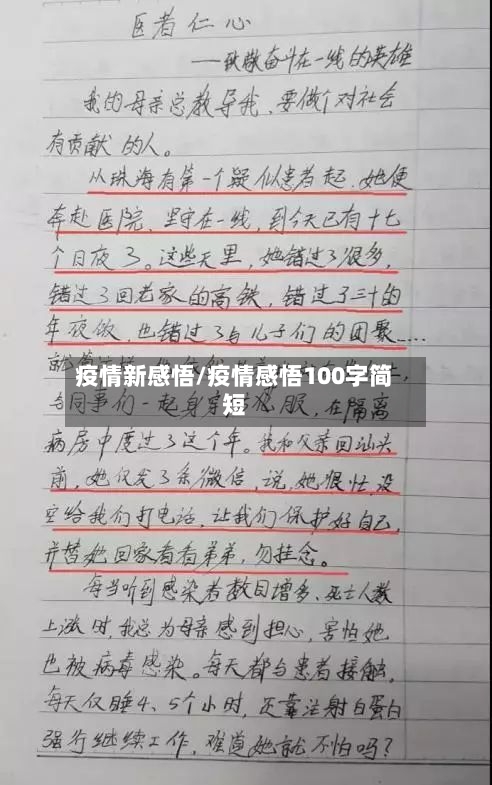 医者仁心
——致敬奋斗在一线的英雄
我的母亲总教导我，要做个对社会
有贡献的人。
从珠海有第一个疑似患者起，她便
奔赴医院，坚守在一线，到今天已有十七
个日夜了。这些天里，她错过了很多，
错过了回老家的高铁，错过了三十的
年夜饭，也错过了与儿子们的团聚……
疫情新感悟/疫情感悟100字简
短
与同事们一起身穿 服，在隔离
病房中度过了这个年。我和父亲回汕头
前，她仅发了条微信，说，她很忙，没
空给我们打电话，让我们保护好自己，
并替她回家看看弟弟，勿挂念。
每当听到感染者数目增多、死亡人数
上涨时，我总为母亲感到担心，害怕她
也被病毒感染。每天都与患者接触，
每天仅睡4、5个小时，还靠注射白蛋白
强行继续工作，难道她就不怕吗？